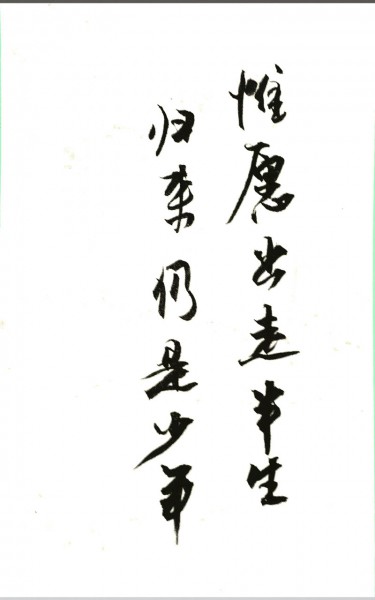 惟愿出走半生
归来仍是少年